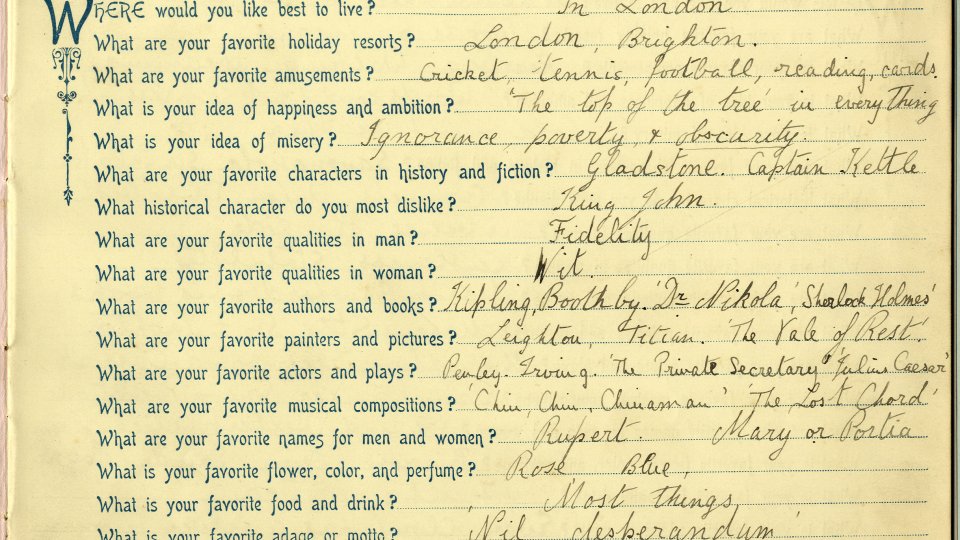 WHERE would you like best to live? In London
What are your favorite holiday resorts? London, Brighton.
What are your favorite amusements? Cricket, tennis, football, reading, cards.
What is your idea of happiness and ambition? 'The top of the tree in everything
What is your idea of misery? Ignorance, poverty, & obscurity.
What are your favorite characters in history and fiction? Gladstone. Captain Kettle
What historical character do you most dislike? King John.
What are your favorite qualities in man? Fidelity
What are your favorite qualities in woman? Wit.
What are your favorite authors and books? Kipling, Boothby. 'Dr Nikola', 'Sherlock Holmes'
What are your favorite painters and pictures? Leighton, Titian. 'The Vale of Rest'.
What are your favorite actors and plays? Penley. Irving. 'The Private Secretary' 'Julius Caesar'
What are your favorite musical compositions? 'Chin, Chin, Chinaman' 'The Lost Chord'
What are your favorite names for men and women? Rupert. Mary or Portia
What is your favorite flower, color, and perfume? Rose Blue,
What is your favorite food and drink? Most things
What is your favorite adage or motto? 'Nil desperandum'